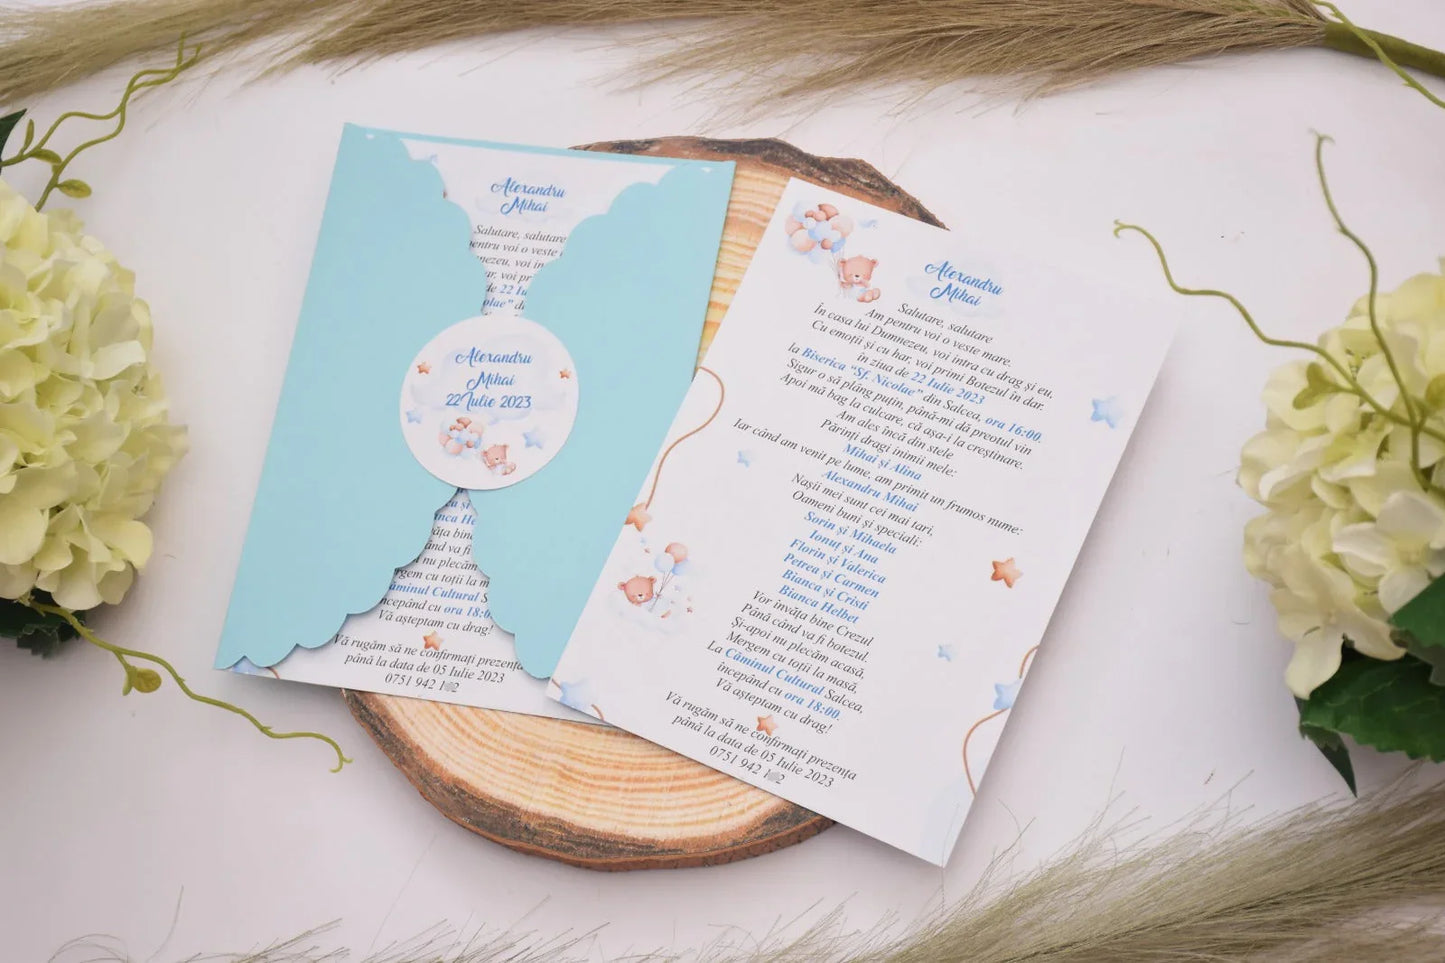 Alexandru
Mihai
Salutare, salutare
pentru voi o veste
voi in
voi pri
de 22 Iu
olae" din
Alexandru
Mihai
22 Iulie 2023
și
anca He
ăța bine
ând va fi
nu plecăm
ergem cu toții la m
Căminul Cultural S
ncepând cu ora 18:0
Vă așteptam cu drag!
Vă rugăm să ne confirmați prezența
până la data de 05 Iulie 2023
0751 942 1 2
Alexandru
Mihai
Salutare, salutare
Am pentru voi o veste mare.
În casa lui Dumnezeu, voi intra cu drag și eu,
Cu emoții și cu har, voi primi Botezul în dar.
în ziua de 22 Iulie 2023
la Biserica "Sf. Nicolae" din Salcea, ora 16:00.
Sigur o să plâng puțin, până-mi dă preotul vin
Apoi mă bag la culcare, că așa-i la creștinare.
Am ales încă din stele
Părinți dragi inimii mele:
Mihai și Alina
Iar când am venit pe lume, am primit un frumos nume:
Alexandru Mihai
Nașii mei sunt cei mai tari,
Oameni buni și speciali:
Sorin și Mihaela
Ionuț și Ana
Florin și Valerica
Petrea și Carmen
Bianca și Cristi
Bianca Helbet
Vor învăța bine Crezul
Până când va fi botezul.
Și-apoi nu plecăm acasă,
Mergem cu toții la masă,
La Căminul Cultural Salcea,
începând cu ora 18:00.
Vă așteptam cu drag!
Vă rugăm să ne confirmați prezența
până la data de 05 Iulie 2023
0751 942 1 2